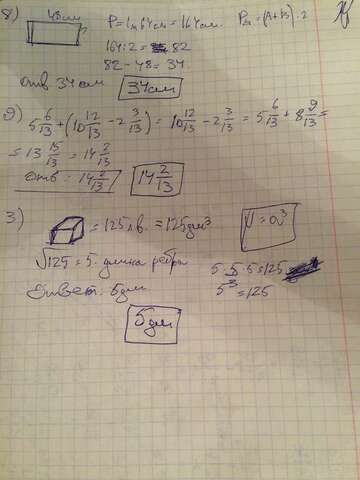 8) 48см P=1м64см=164см. Pп=(A+B)·2
164:2=82
82-48=34
Отв 34см 34см
9) 5 6/13+(10 12/13-2 3/13)=10 12/13-2 3/13=5 6/13+8 9/13=
=13 15/13=14 2/13
Отв: 14 2/13 14 2/13
3) =125лв.=125дм³ V=a³
√125=5. длина ребра 5·5·5=125
Ответ. 5дм 5³=125
5дм